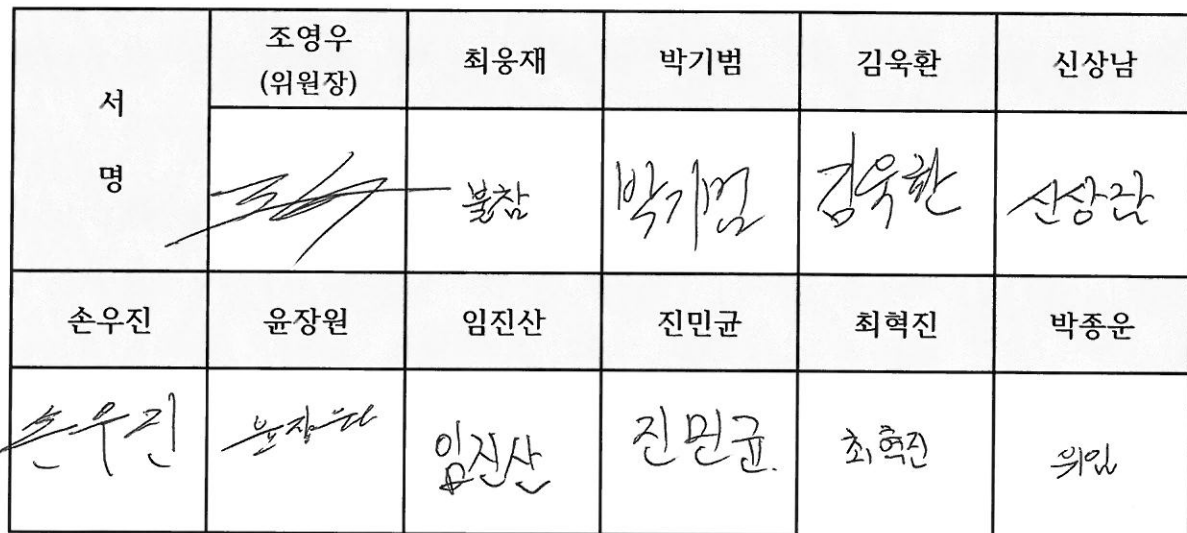 서
명
조영우
(위원장)
최웅재
박기범
김욱환
신상남
불참
박기범
김욱환
신상남
손우진
윤장원
임진산
진민균
최혁진
박종운
손우진
윤장원
임진산
진민균.
최혁진
위임